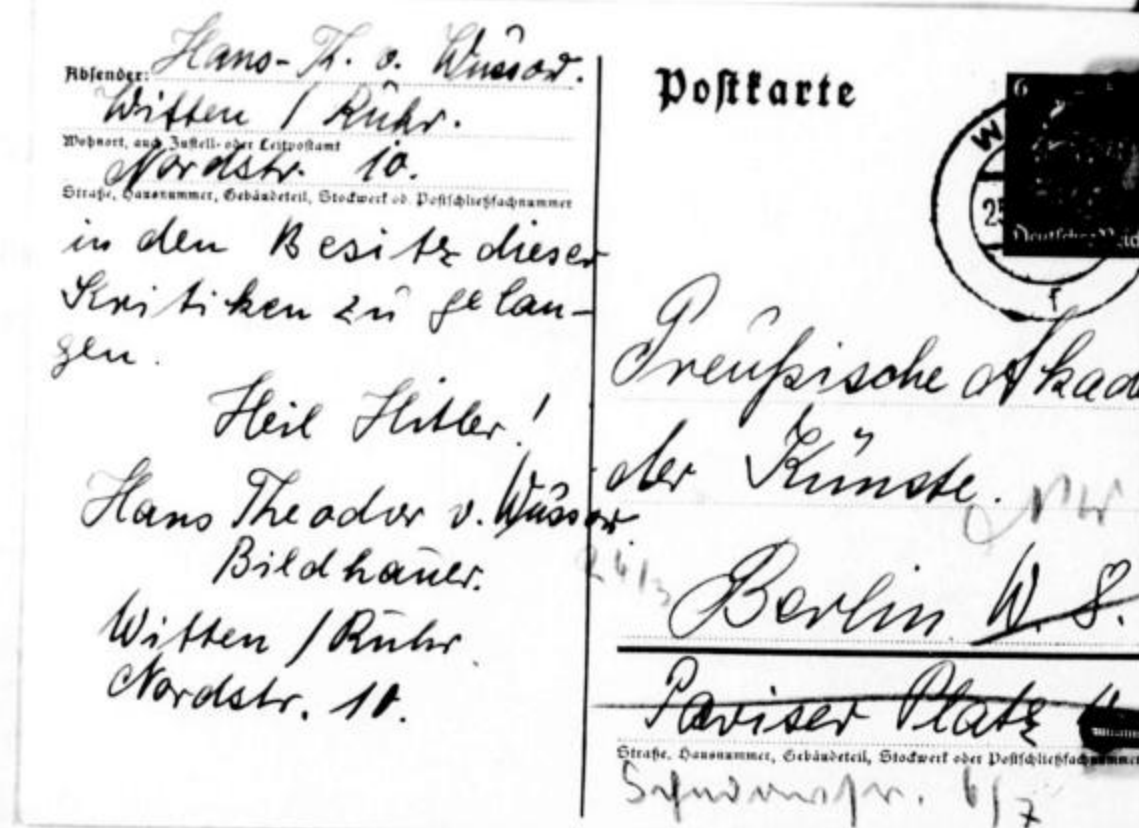 Absender: Hans-Th. v. Wussow.
Witten / Ruhr.
Wohnort, auch Zustell- oder Leitpostamt
Nordstr. 10.
Straße, Hausnummer, Gebäudeteil, Stockwerk od. Postschließfachnummer
in den Besitz dieser
Kritiken zu gelan-
gen.
Heil Hitler!
Hans Theodor v. Wussow.
Bildhauer.
Witten / Ruhr.
Nordstr. 10.
Postkarte
6
W
25
Deutsches Reich
r
Preußische Akad
der Künste.
Berlin W. 8.
Pariser Platz
Straße, Hausnummer, Gebäudeteil, Stockwerk oder Postschließfachnummer
6/7